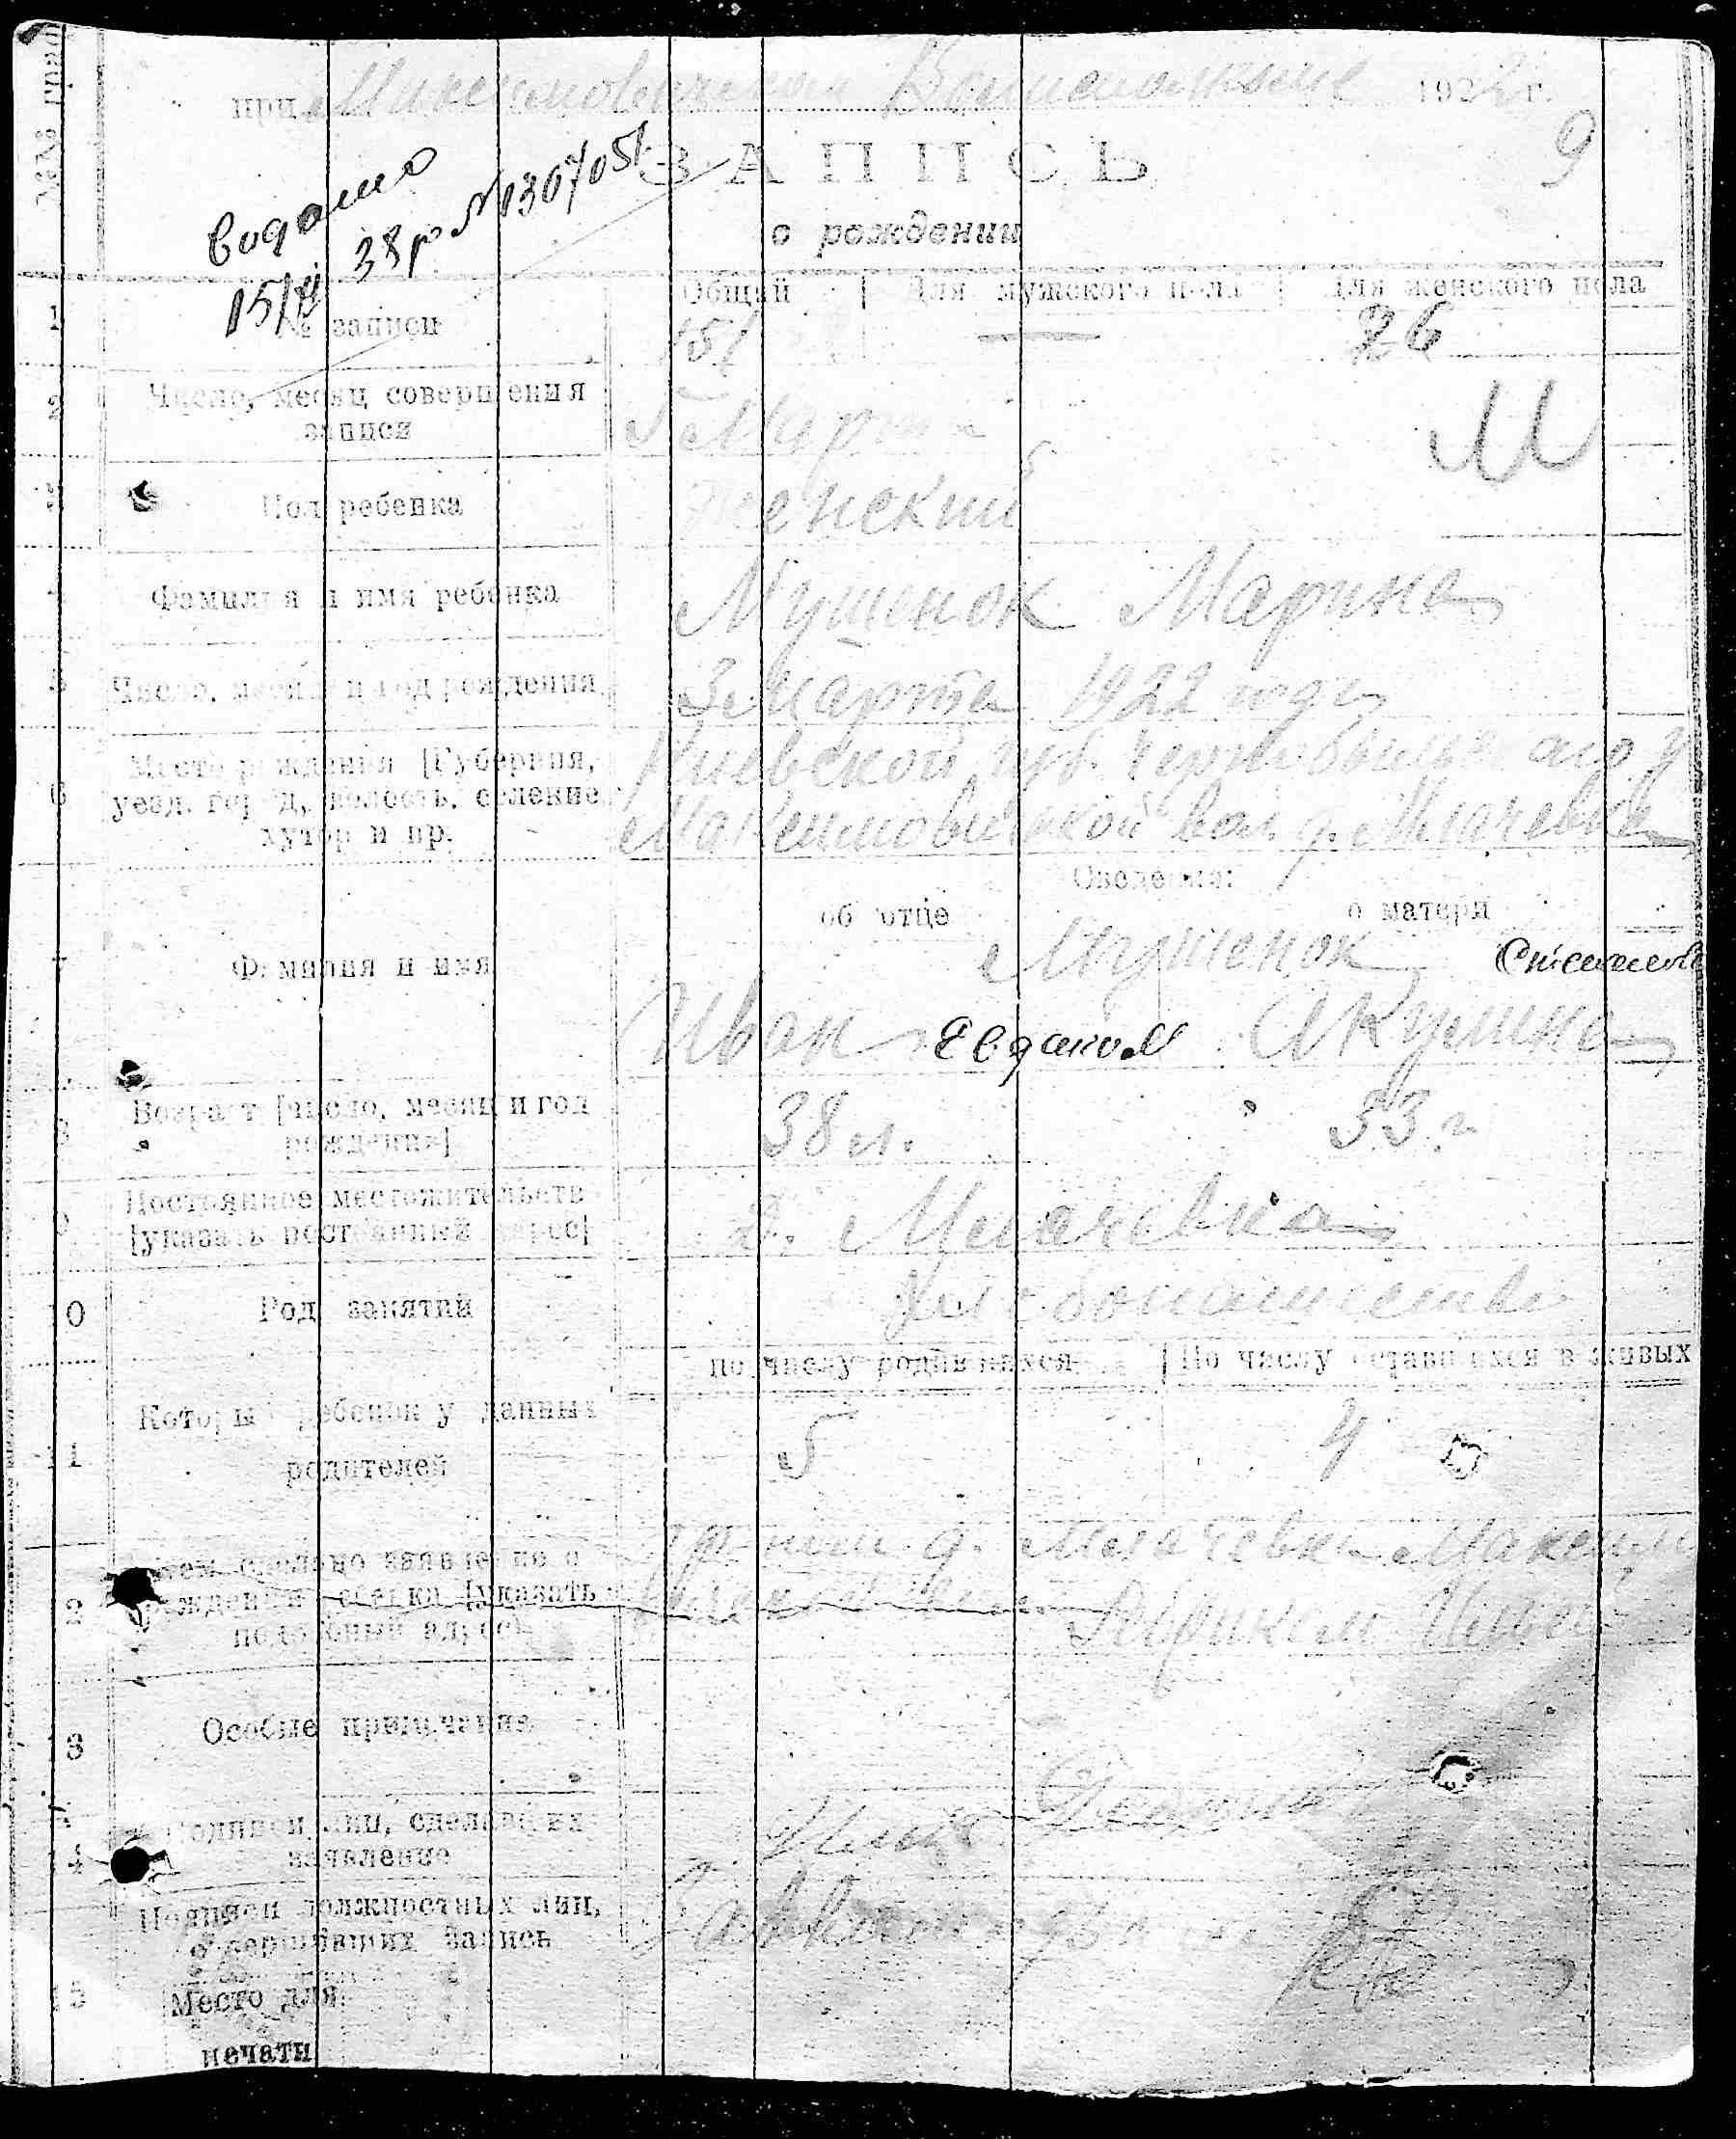 при Максимовичском Волисполкоме 1922 г.
9
ЗАПИСЬ
о рождении
видано
38р №1307051
15/VI
Общий Для мужского пола Для женского пола
1 № записи 151 — 26
2 Число, месяц совершения
записи
5 Марта
М
Пол ребенка Женский
4 Фамилия и имя ребенка Мушенок Марина
5 Число, месяц и год рождения 3 Марта 1922 года
6 Место рождения [Губерния,
уезд, город, волость, селение
хутор и пр.
Киевской губ. Чернобыльского у
Максимовичской вол. д. Млачевка
Сведения:
об отце о матери
7 Фамилия и имя Мушенок
Иван Евдоким Акулина
8 Возраст [число, месяц и год
рождения]
38 л. 33 г
9 Постоянное местожительств
[указать постоянный адрес]
д. Млачевка
10 Род занятий Хлебопашество
по числу родившихся По числу оставшихся в живых
11 Который ребенок у данных
родителей
5 4
12 Кем сделано заявление о
рождении ребенка [указать
подробный адрес
д. Млачевка
13 Особые примечания
14 Подписи лиц, сделавших
заявление
Подписи должностных лиц,
совершивших запись
15 Место для
печати